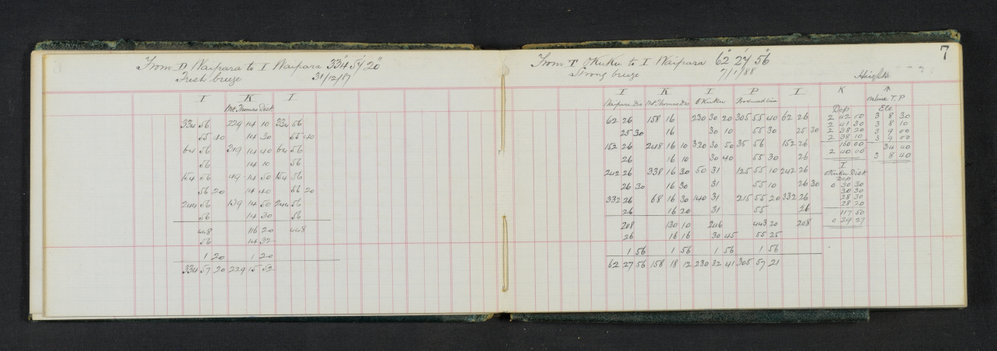 From D Waipara to I Waipara 334° 57' 20"
Fresh breeze 31/12/87
I K I
Mt Thomas Dist
334 56 229 14 10 334 56
55 40 14 30 55 40
64 56 319 14 40 64 56
56 14 10 56
154 56 49 14 50 154 56
56 20 14 40 56 20
244 56 139 14 50 244 56
56 14 30 56
448 116 20 448
56 14 32
1 20 1 20
334 57 20 229 15 52
7
From T Okuku to I Waipara 62° 27' 56"
Strong breeze 7/1/88
Heights
I K I P I K
Waipara Dis Mt Thomas Dis Okuku
62 26 158 16 230 30 20 305 55 40 62 26
25 30 16 30 10 55 30 25 30
152 26 248 16 10 320 30 50 35 56 152 26
26 16 10 30 40 55 30 26
242 26 338 16 30 50 31 125 55 10 242 26
26 30 16 30 31 55 10 26 30
332 26 68 16 30 140 31 215 55 20 332 26
26 16 20 31 55 26
208 130 10 246 443 20 208
26 16 16 30 45 55 25
1 56 1 56 1 56 1 56
62 27 56 158 18 12 230 32 41 305 57 21
Dep Ele
2 42 10 3 8 30
2 41 30 3 8 10
2 38 20 3 9 00
2 38 10 3 9 00
160 00 34 40
2 40 00 3 8 40
I
Okuku Dist
Dep
0 30 30
30 30
28 30
28 20
117 50
0 29 27